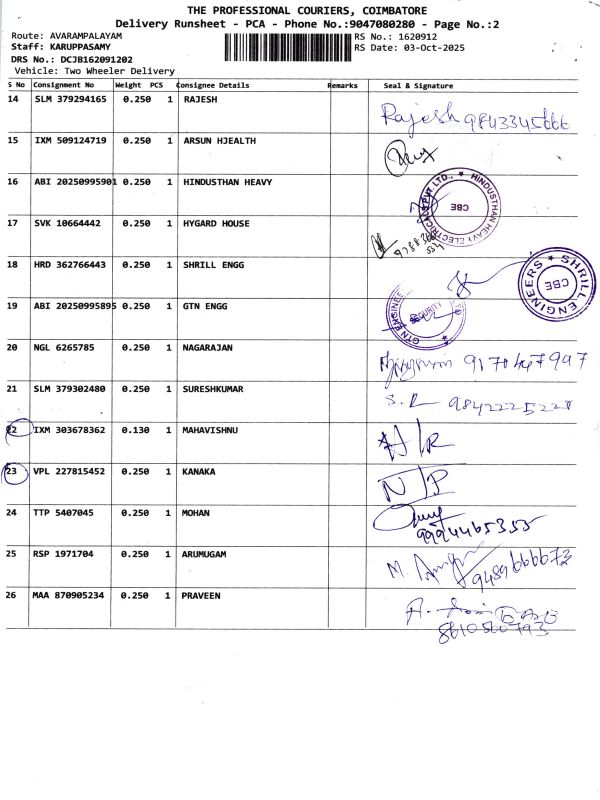 THE PROFESSIONAL COURIERS, COIMBATORE
Delivery Runsheet - PCA - Phone No.:9047080280 - Page No.:2
Route: AVARAMPALAYAM RS No.: 1620912
Staff: KARUPPASAMY RS Date: 03-Oct-2025
DRS No.: DCJB162091202
Vehicle: Two Wheeler Delivery
S No Consignment No Weight PCS Consignee Details Remarks Seal & Signature
14 SLM 379294165 0.250 1 RAJESH Rajesh
15 IXM 509124719 0.250 1 ARSUN HJEALTH
16 ABI 20250995901 0.250 1 HINDUSTHAN HEAVY
HINDUSTHAN HEAVY ELECTRICALS PVT LTD., CBE
17 SVK 10664442 0.250 1 HYGARD HOUSE
18 HRD 362766443 0.250 1 SHRILL ENGG
SHRILL ENGINEERS CBE
19 ABI 20250995895 0.250 1 GTN ENGG
GTN ENGINEE
20 NGL 6265785 0.250 1 NAGARAJAN
21 SLM 379302480 0.250 1 SURESHKUMAR S.R
22 IXM 303678362 0.130 1 MAHAVISHNU
23 VPL 227815452 0.250 1 KANAKA N/P
24 TTP 5407045 0.250 1 MOHAN
9994465355
25 RSP 1971704 0.250 1 ARUMUGAM
9489666673
26 MAA 870905234 0.250 1 PRAVEEN